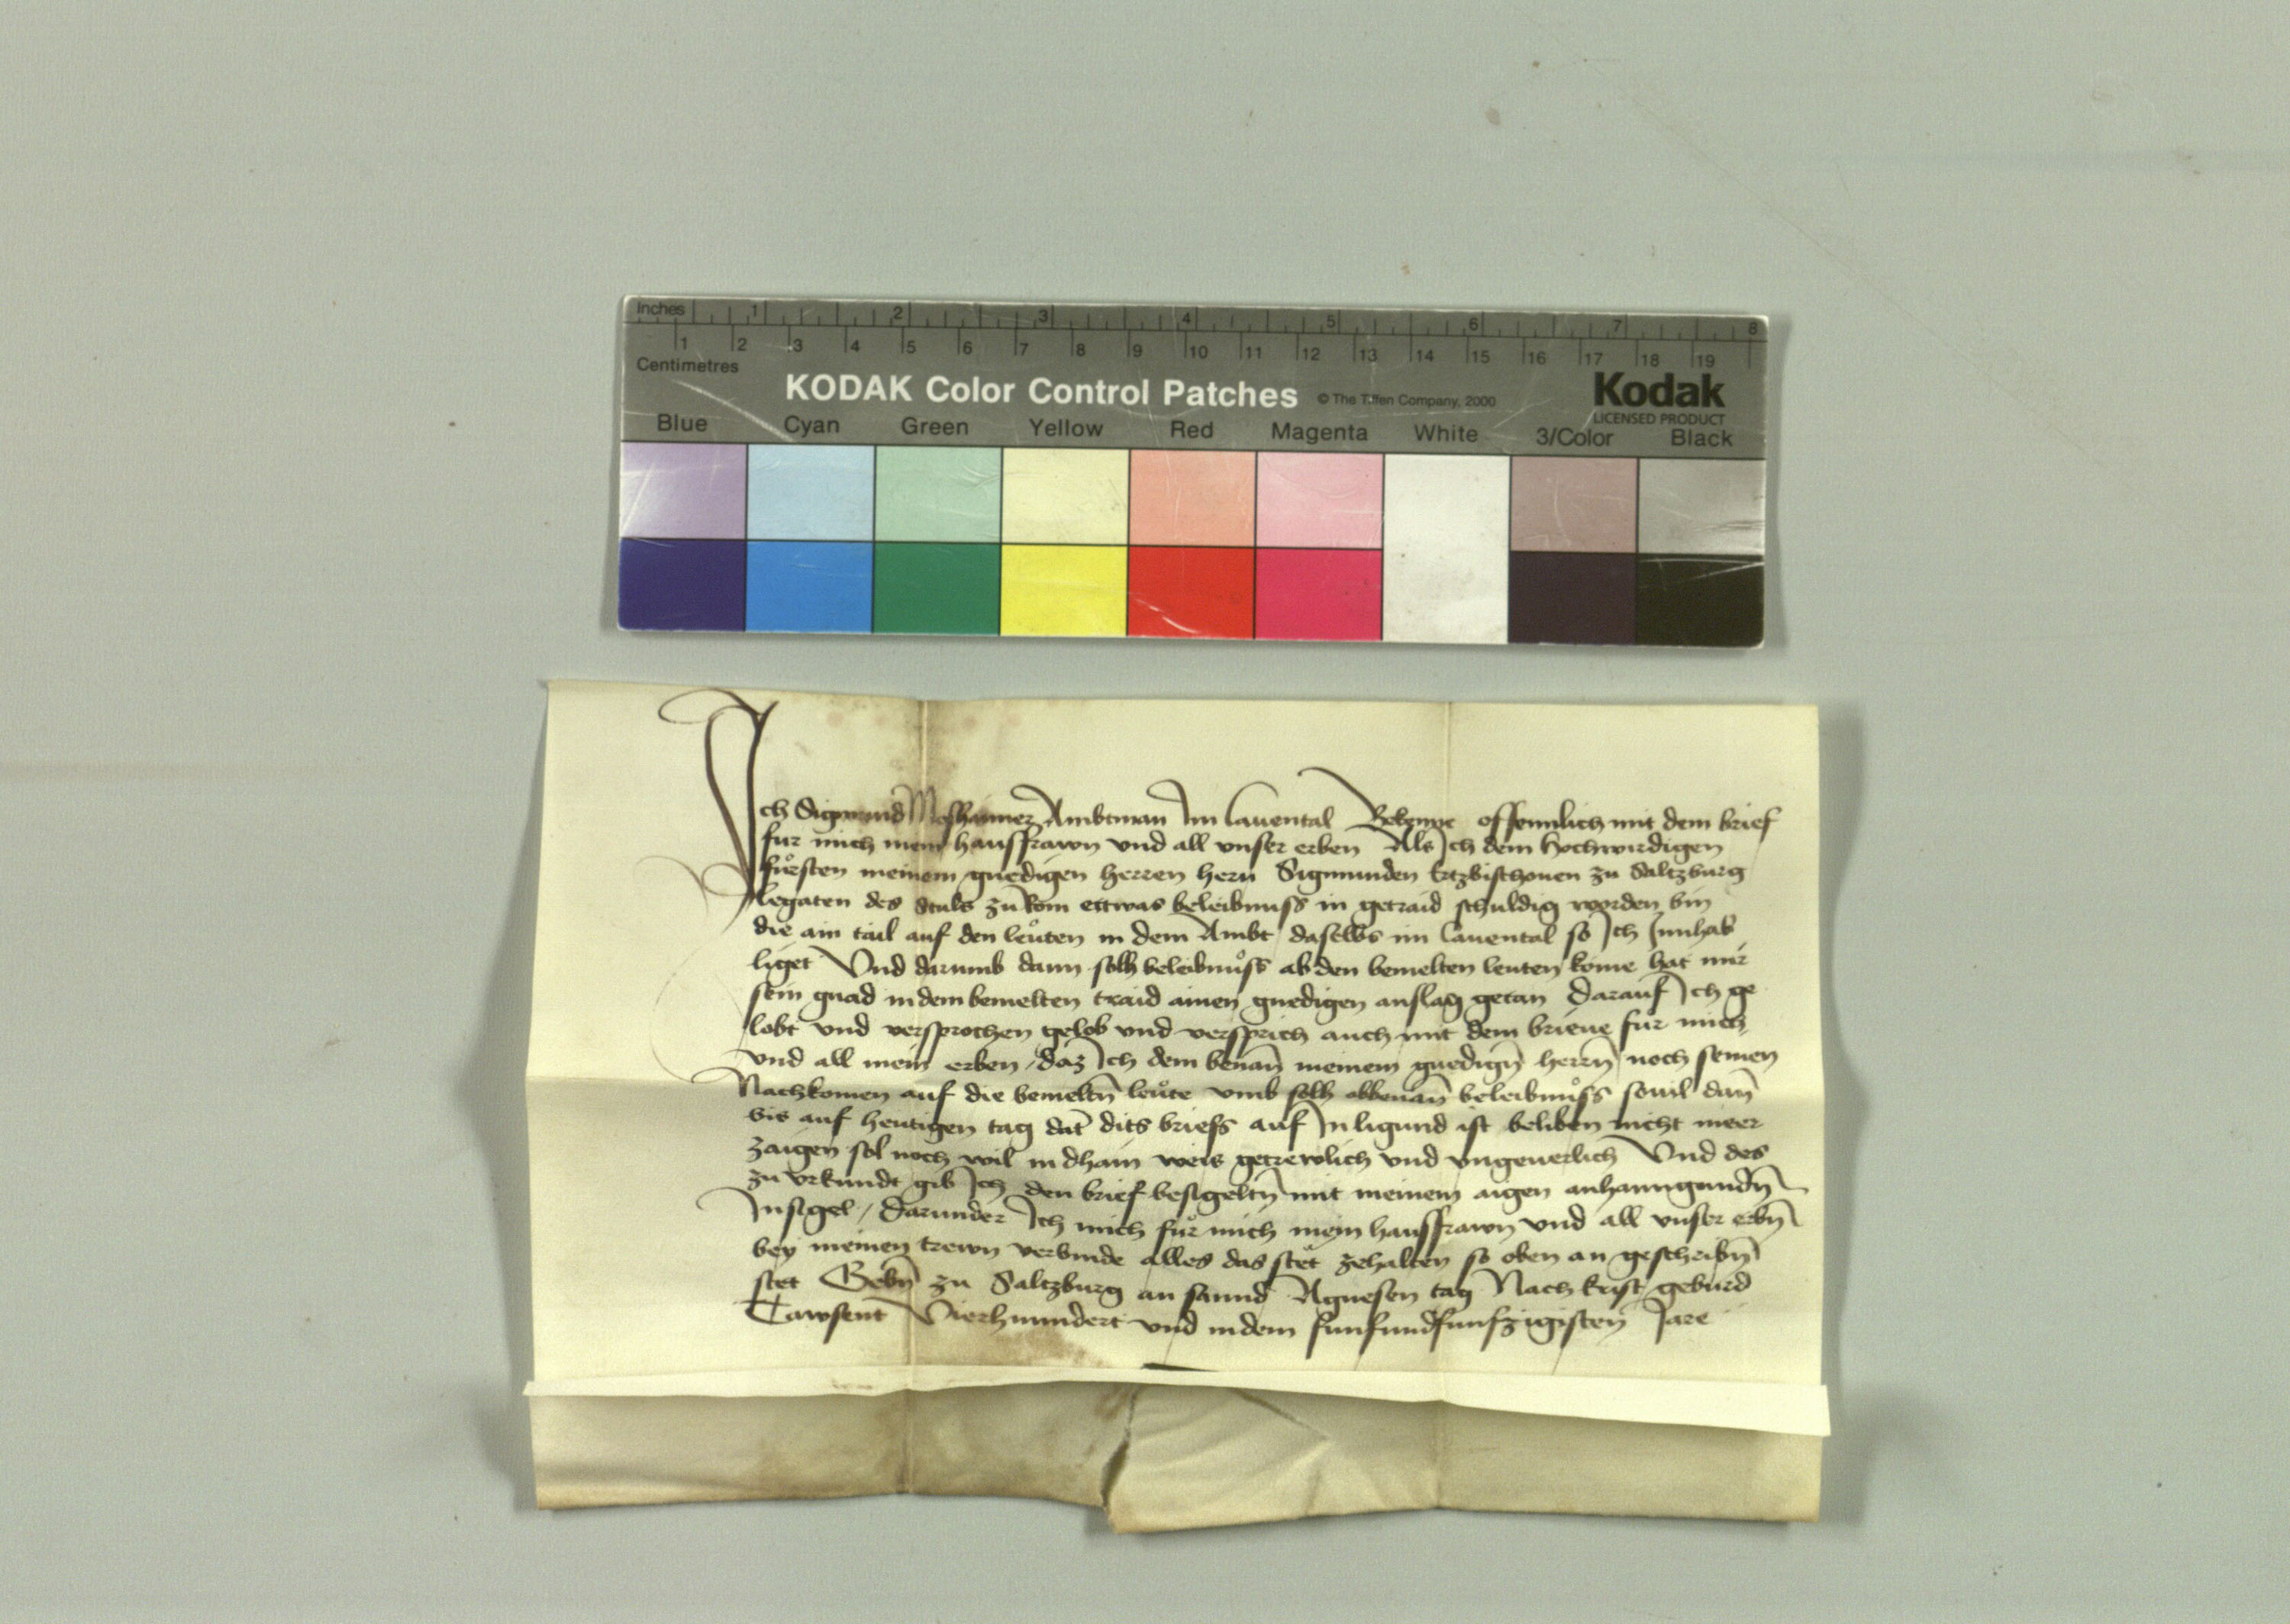 Inches 1 2 3 4 5 6 7 8
1 2 3 4 5 6 7 8 9 10 11 12 13 14 15 16 17 18 19
Centimetres
KODAK Color Control Patches © The Tiffen Company, 2000 Kodak
LICENSED PRODUCT
Blue Cyan Green Yellow Red Magenta White 3/Color Black
Ich Sigmund Moshaimer Ambtman Im lauental Bekenne offennlich mit dem brief
fur mich mein hausfrawn vnd all vnser erben Als Ich dem hochwirdigen
fürsten meinem gnedigen herren hern Sigmunden Ertzbischouen zu Saltzburg
legaten des Stuls zu Rom ettwas beleibnuss in getraid schuldig worden bin
die ain tail auf den leůten in dem Ambt daselbs im lauental so Ich Innhab
liget Vnd darumb dann solh beleibnůss ab den bemelten leuten kome hat mir
sein gnad in dem bemelten traid ainen gnedigen anslag getan Darauf Ich ge
lobt vnd versprochen gelob vnd versprich auch mit dem brieue fůr mich
vnd all mein erben, daz Ich dem benañ meinem gnedigñ herrñ noch seinen
Nachkomen auf die bemeltñ leůte vmb solh obbenañ beleibnůss souil dañ
bis auf heutigen tag dat̄ dits briefs auf In ligund ist beliben nicht meer
zaigen sol noch wil in dhain weis getrewlich vnd vngeuerlich Vnd des
zu vrkundt gib Ich den brief besigeltñ mit meinem aigen anhanngundñ
Insigel / Darunder Ich mich fůr mich mein hausfrawn vnd all vnser erbñ
bey meinen trewn verbinde alles das stět zehalten so oben an geschribñ
stet Gebñ zu Saltzburg an sannd Agnesen tag Nach krist geburd
Tawsent Vierhundert vnd in dem funfundfunfzigisten Jare